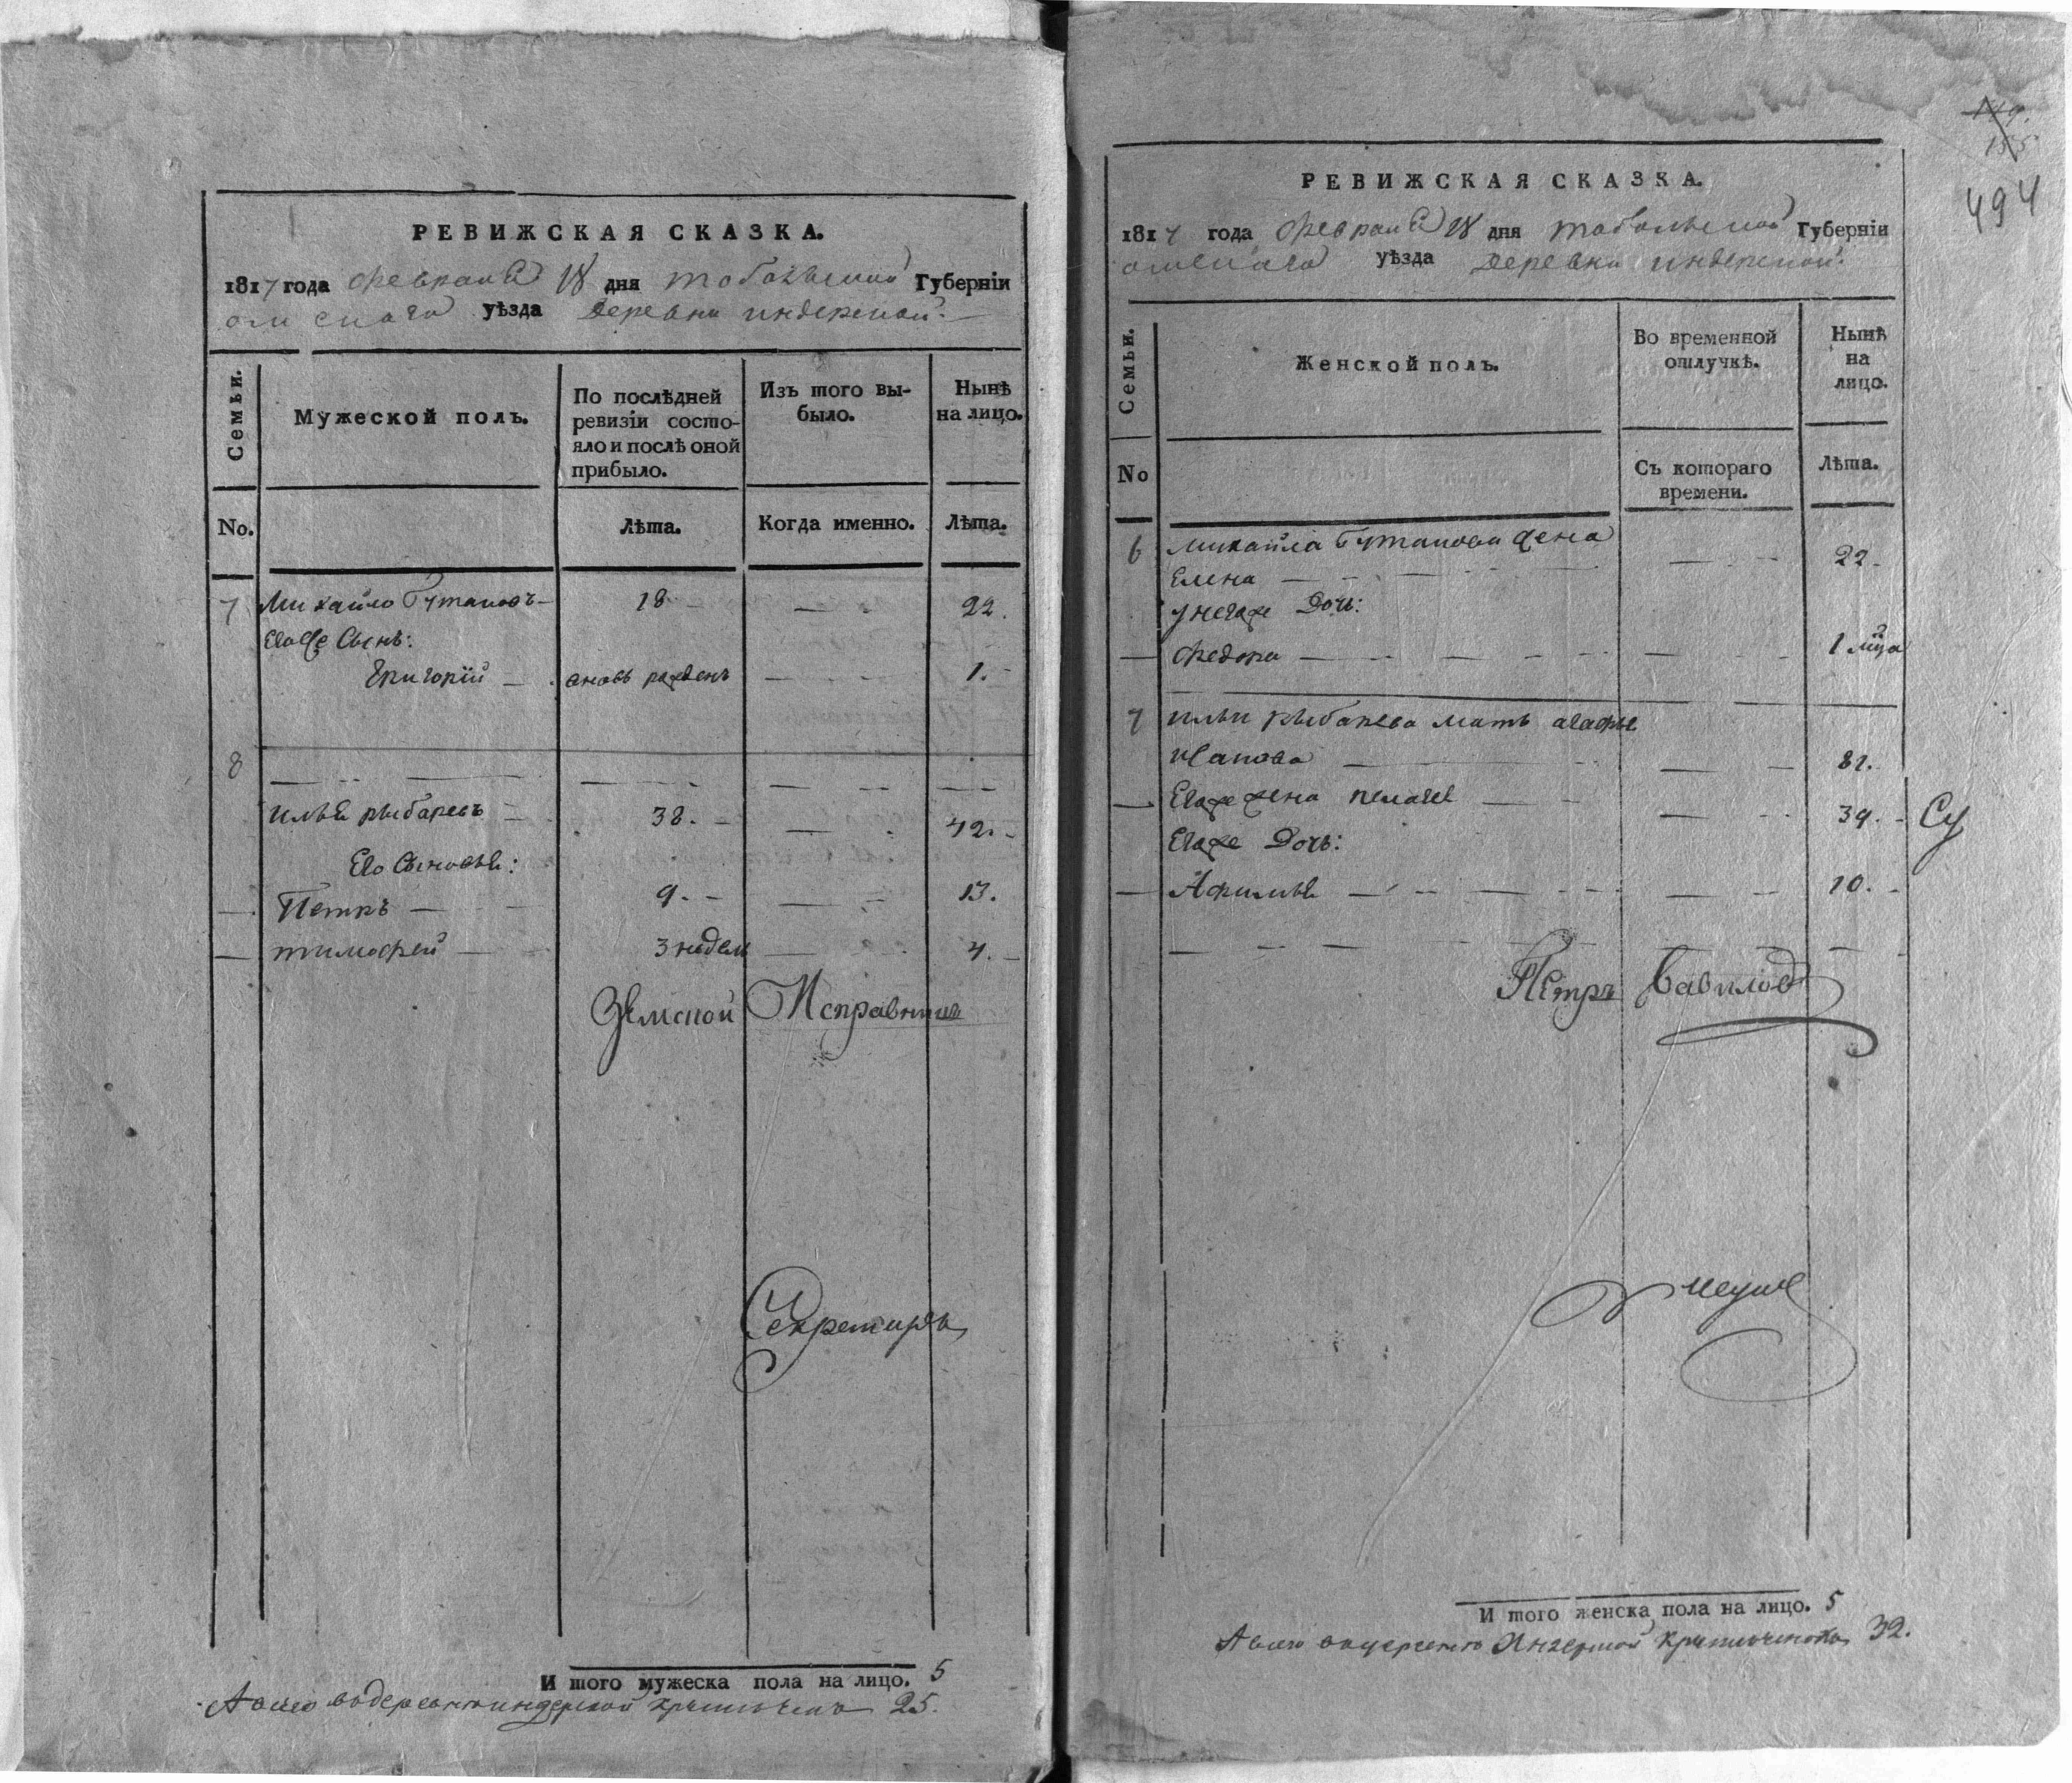 РЕВИЖСКАЯ СКАЗКА.
1817 года февраля 18 дня тобольской Губернiи
омскаго уѣзда деревни индерской
Семьи.
Мужеской полъ.
По послѣдней ревизiи состояло и послѣ оной прибыло.
Изъ того выбыло.
Нынѣ на лицо.
No.
Лѣта.
Когда именно.
Лѣта.
7 Михайло 18 22.
Егоже Сынъ:
Григорiй вновь рожденъ 1.
8
илья рыбаревъ 38. 42.
Его Сыновья:
Петръ 9. 13.
тимофей 3 недель 4.
Земской Исправникъ
Секретарь
И того мужеска пола на лицо. 5
А всего въ деревне индерской 25.
149.
155
494
РЕВИЖСКАЯ СКАЗКА.
1817 года февраля 18 дня тобольской Губернiи
омскаго уѣзда деревни индерской.
Семьи.
Женской полъ.
Во временной отлучкѣ.
Нынѣ на лицо.
No
Съ котораго времени.
Лѣта.
6 михайла жена
Елена 22
унегоже Дочь:
федора 1 мца
7 ильи рыбарева мать агафья
иванова 81.
Егоже жена пелагея 39.
Егоже Дочь:
Афимья 10.
Су
Петръ Вавилов
И того женска пола на лицо. 5
А всего индерской 32.